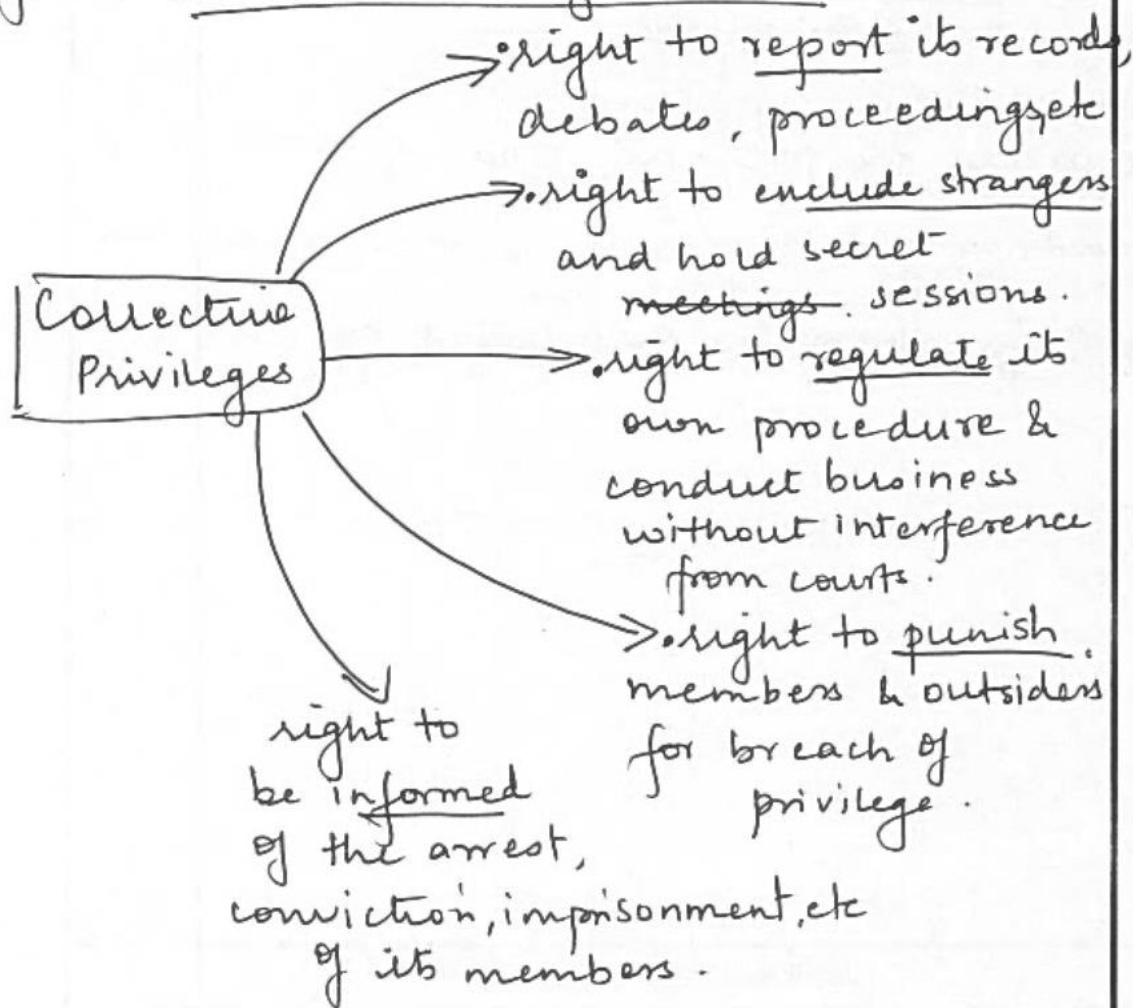 .right to report its records,
debates, proceedings, etc
.right to exclude strangers
and hold secret
meetings. sessions.
Collective
Privileges
.right to regulate its
own procedure &
conduct business
without interference
from courts.
.right to punish.
members & outsiders
for breach of
privilege.
right to
be informed
of the arrest,
conviction, imprisonment, etc
of its members.